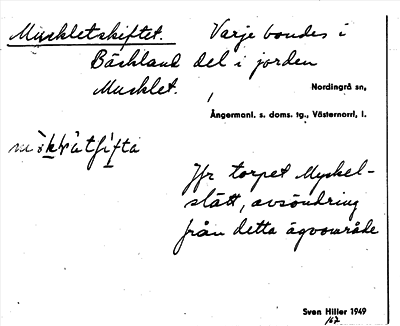 Muskletskiftet. Varje bondes i
Bäckland del i jorden
Musklet.
Nordingrå sn,
Ångermanl. s. doms. tg., Västernorrl. l.
Jfr torpet Myckel-
slätt, avsöndring
från detta ägoområde
Sven Hiller 1949
167